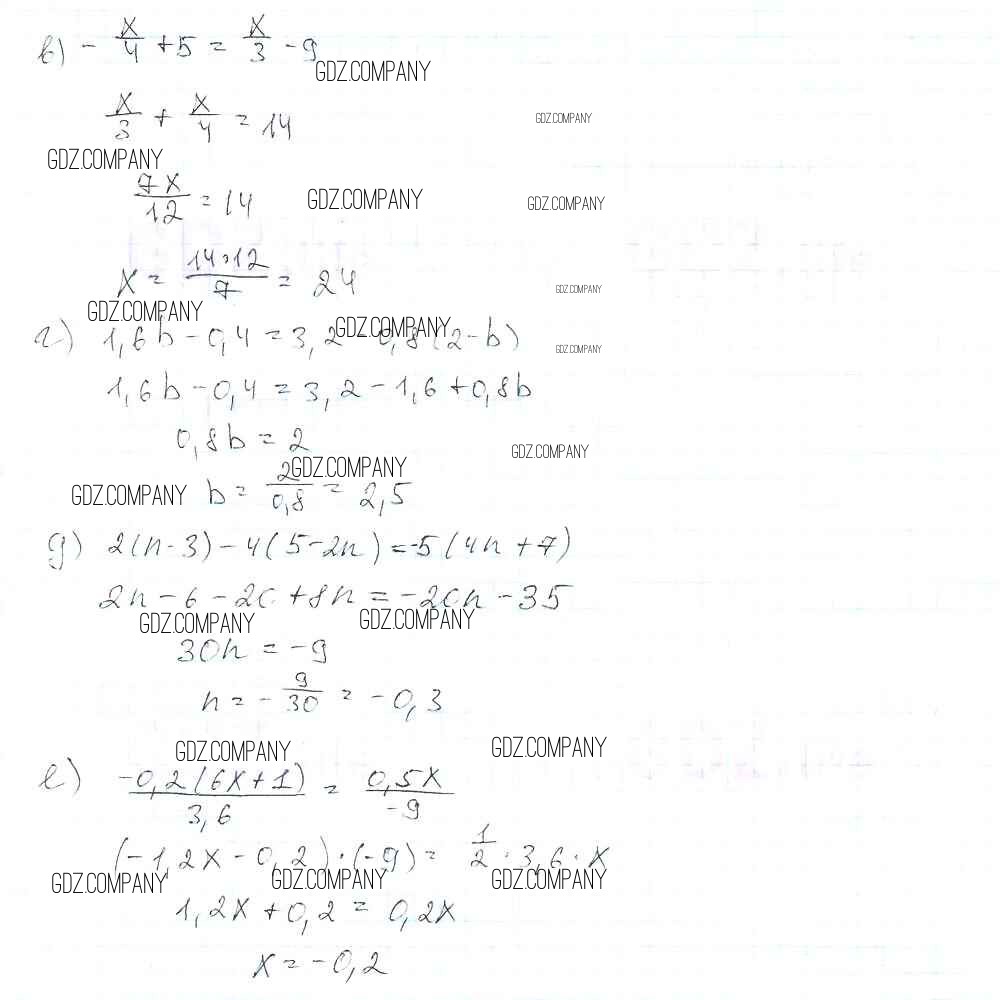 в) - x/4 + 5 = x/3 - 9
GDZ.COMPANY
x/3 + x/4 = 14
GDZ.COMPANY
GDZ.COMPANY
7x/12 = 14
GDZ.COMPANY
GDZ.COMPANY
x = 14·12/7 = 24
GDZ.COMPANY
GDZ.COMPANY
г) 1,6b - 0,4 = 3,2 - 0,8(2-b)
GDZ.COMPANY
GDZ.COMPANY
1,6b - 0,4 = 3,2 - 1,6 + 0,8b
0,8b = 2
GDZ.COMPANY
GDZ.COMPANY
GDZ.COMPANY
b = 2/0,8 = 2,5
д) 2(n-3) - 4(5-2n) = -5(4n+7)
2n - 6 - 20 + 8n = -20n - 35
GDZ.COMPANY
GDZ.COMPANY
30n = -9
n = - 9/30 = -0,3
GDZ.COMPANY
GDZ.COMPANY
е) -0,2(6x+1)/3,6 = 0,5x/-9
(-1,2x - 0,2)·(-9) = 1/2 · 3,6 · x
GDZ.COMPANY
GDZ.COMPANY
GDZ.COMPANY
1,2x + 0,2 = 0,2x
x = -0,2